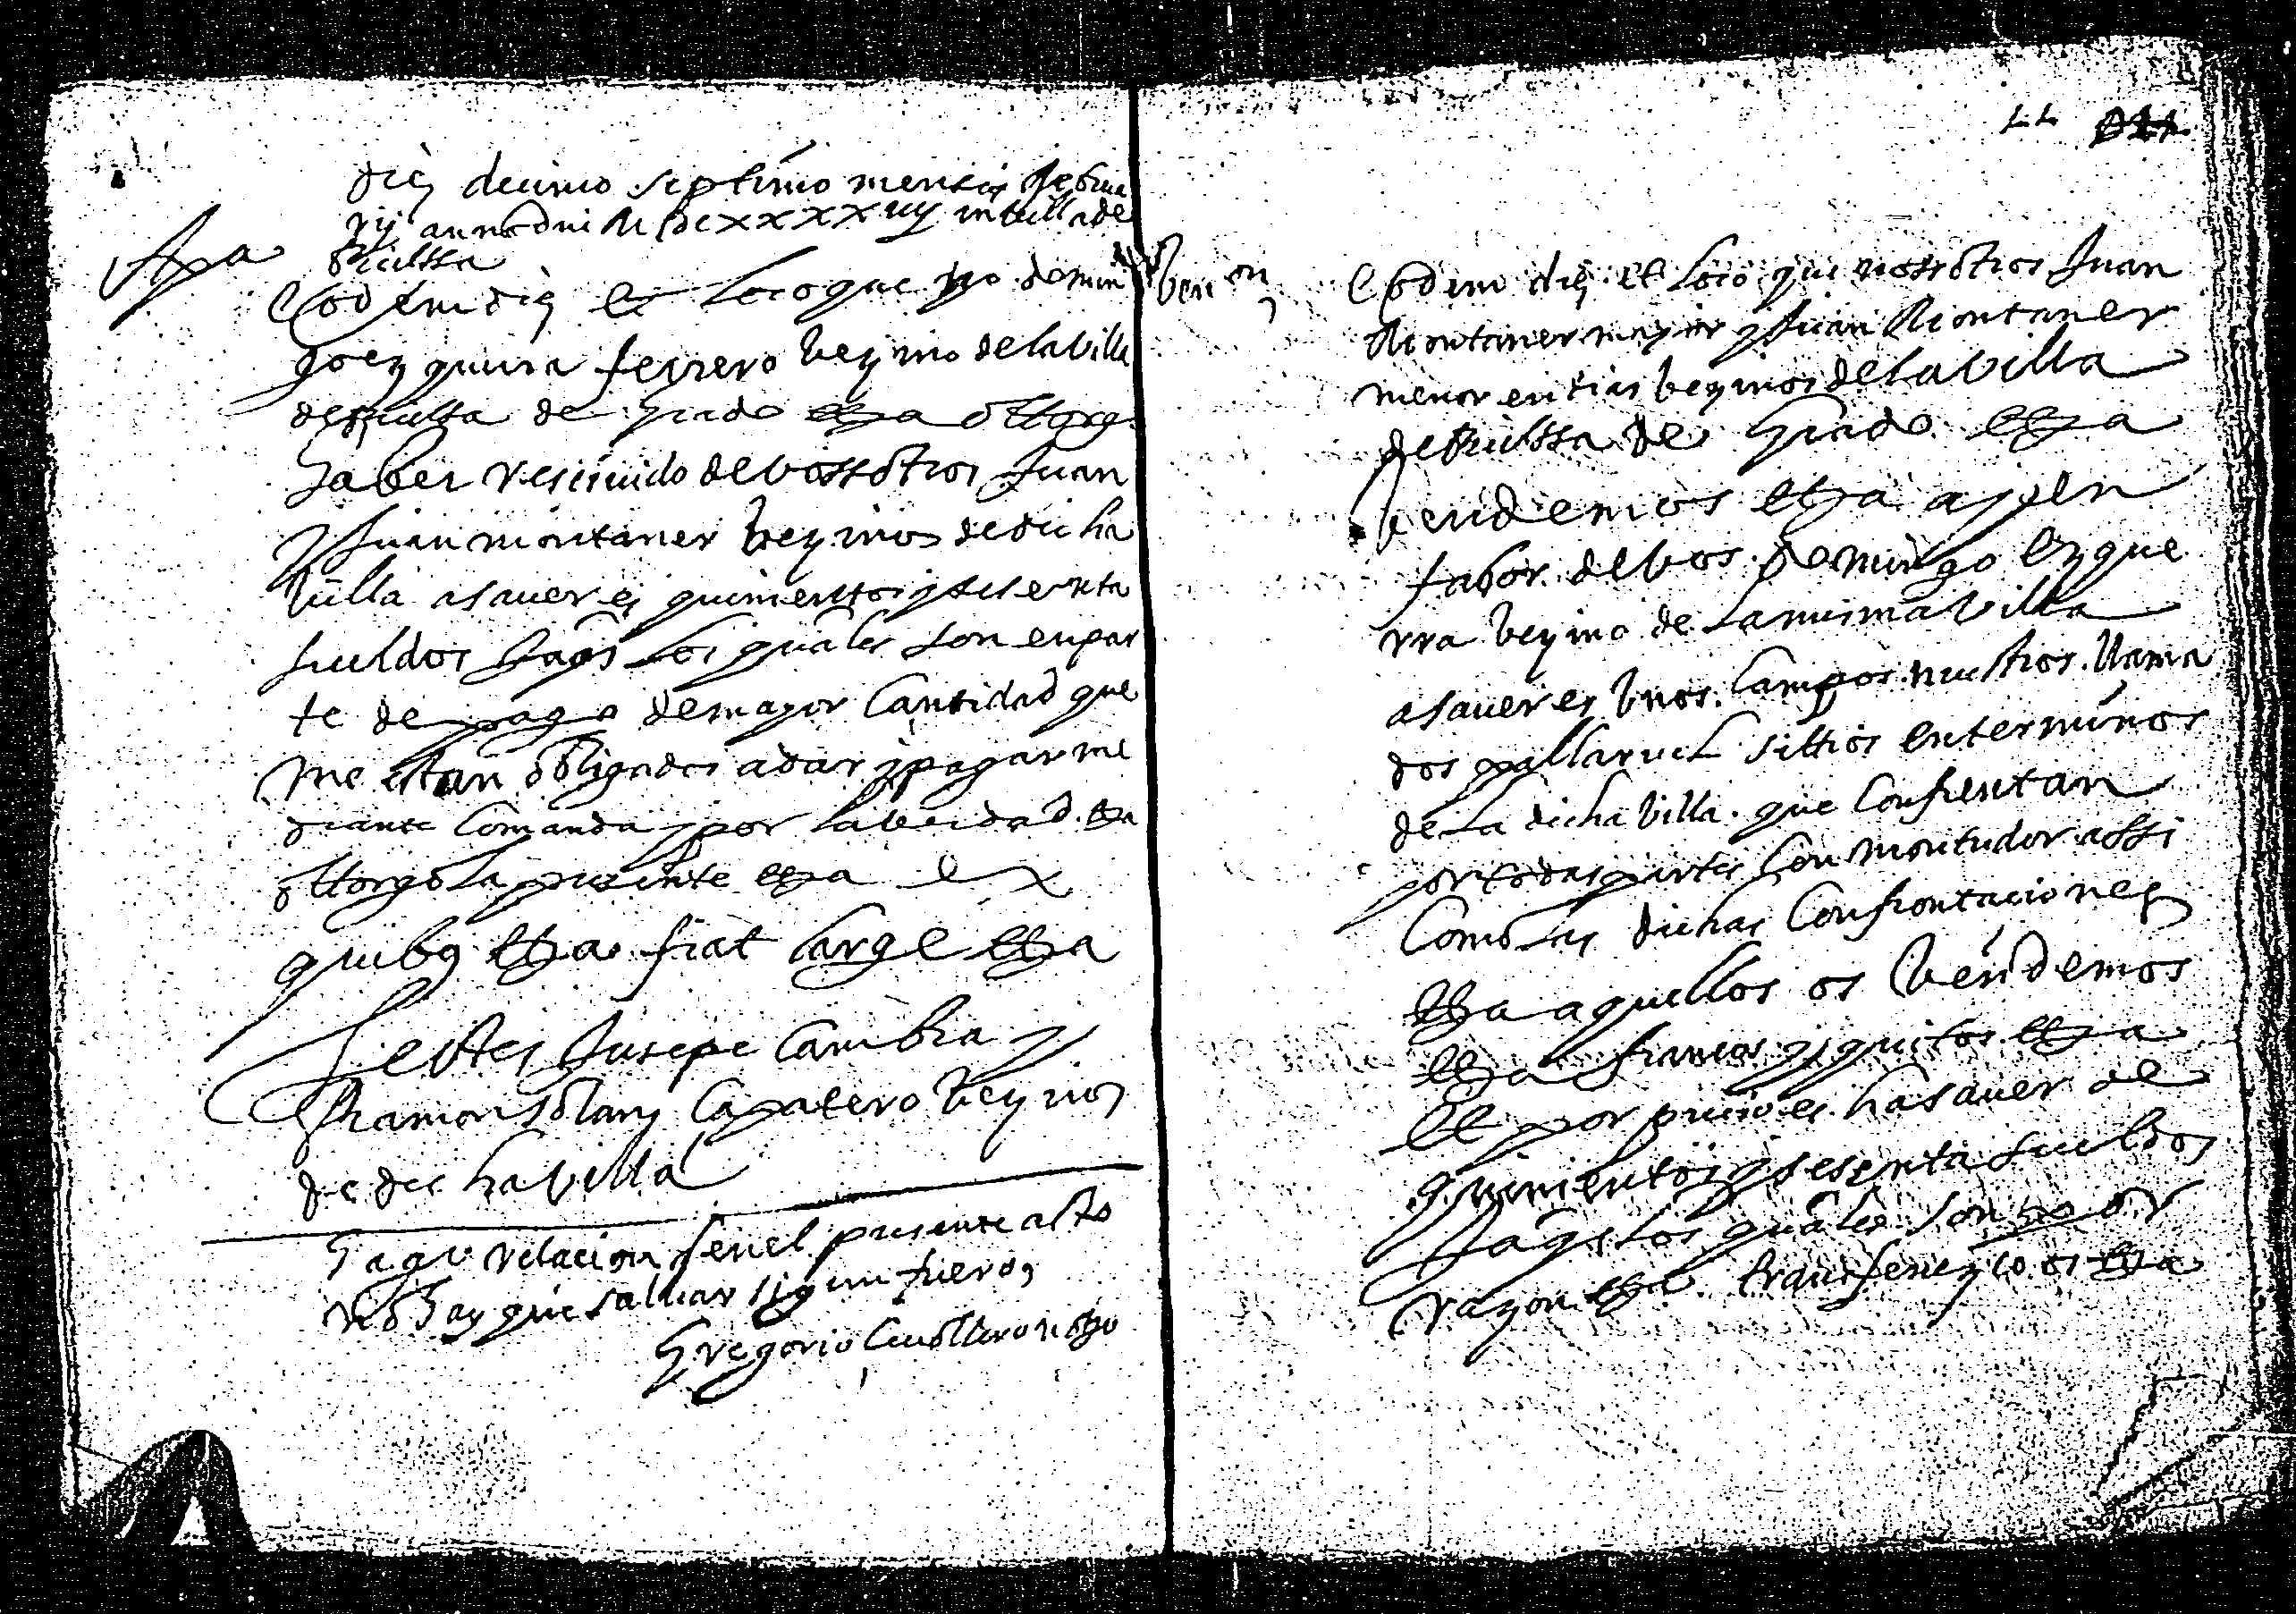 Apa
die decimo septimo mensis februa
rij anno dni M DC xxxx viiij in villa de
Bielssa
Eodem die et loco que yo domin
go ezquirra ferrero vezino de la villa
de Bielsa de grado etza ottorg
haber resciuido de vossotros Juan
y Juan montaner vezinos de dicha
villa asauer es quinientos y sesenta
sueldos Jaqs los quales son en par
te de pago de mayor cantidad que
me estan obligados a dar y pagar me
diante comanda y por la verdad etza
ottorgo la presente etza ex
quibg etza fiat large etza
Testes Jusepe Cambra y
Ramon solans Capatero vezinos
de dicha villa
hago relacion q en el presente acto
no hay que saluar sigun fuero,
Gregorio Cauallero noto
LL
Vencion
Eodem die et loco que nossotros Juan
Montaner mayor y Juan Montaner
menor vezinos de la villa
de Bielssa de grado etza
vendemos etza a y en
fabor de vos domingo ezque
rra vezino de la misma villa
asauer es unos campos nuestros llama
dos pallaruel sittios en terminos
de la dicha villa que confrentan
por todas partes con montudor assi
como las dichas confrontaciones
etza aquellos os vendemos
etza francos y quitos etza
Et por precio es hasauer de
quinientos y sesenta sueldos
Jaqs los quales son por
razon etza transferiezco os etza